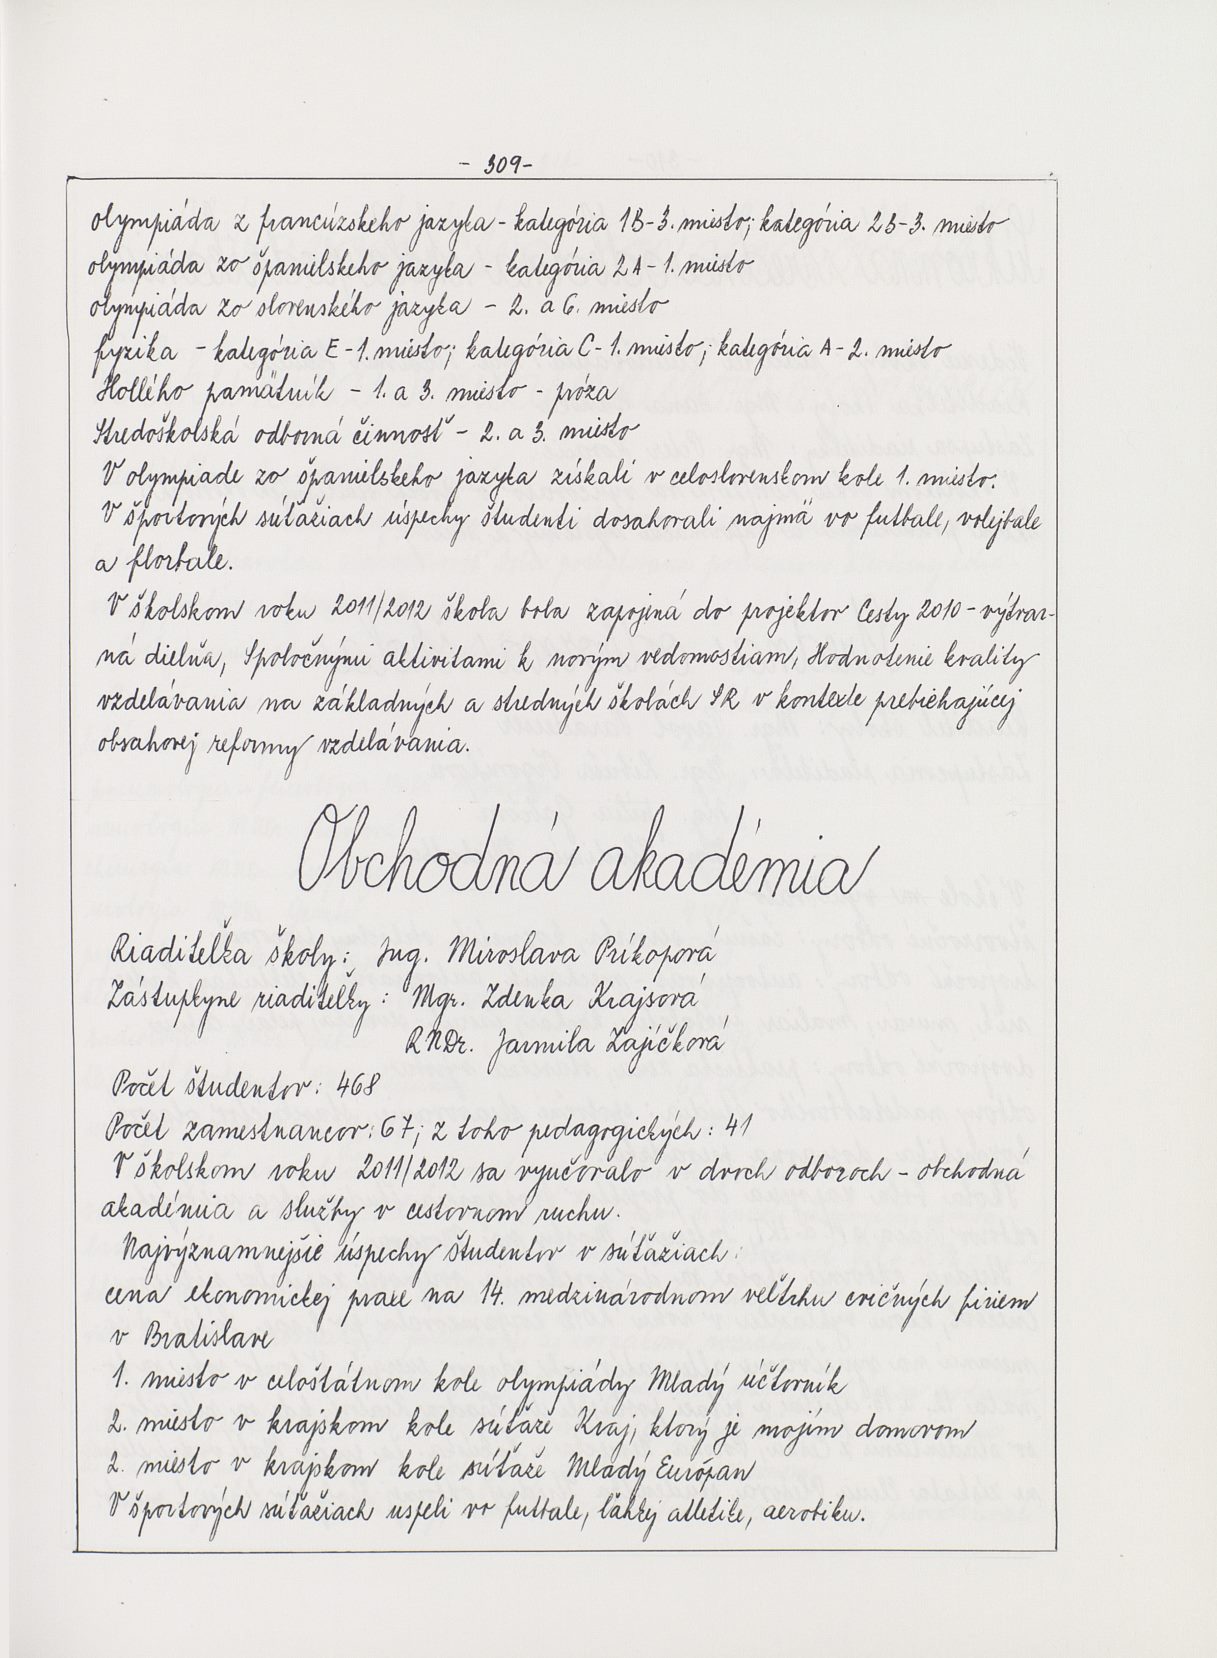 - 309-
olympiáda z francúzskeho jazyka - kategória 1B-3. miesto; kategória 2B-3. miesto
olympiáda zo španielskeho jazyka - kategória 2A-1. miesto
olympiáda zo slovenského jazyka - 2. a 6. miesto
fyzika - kategória E-1. miesto; kategória C-1. miesto; kategória A-2. miesto
Hollého pamätník - 1. a 3. miesto - próza
Stredoškolská odborná činnosť - 2. a 3. miesto
V olympiade zo španielskeho jazyka získali v celoslovenskom kole 1. miesto.
V športových súťažiach úspechy študenti dosahovali najmä vo futbale, volejbale
a florbale.
V školskom roku 2011/2012 škola bola zapojená do projektov Cesty 2010 - výtvar-
ná dielňa, Spoločnými aktivitami k novým vedomostiam, Hodnotenie kvality
vzdelávania na základných a stredných školách SR v kontexte prebiehajúcej
obsahovej reformy vzdelávania.
Obchodná akadémia
Riaditeľka školy: Ing. Miroslava Príkopová
Zástupkyne riaditeľky: Mgr. Zdenka Krajsová
RNDr. Jarmila Zajíčková
Počet študentov: 468
Počet zamestnancov: 67; z toho pedagogických: 41
V školskom roku 2011/2012 sa vyučovalo v dvoch odboroch - obchodná
akadémia a služby v cestovnom ruchu.
Najvýznamnejšie úspechy študentov v súťažiach:
cena ekonomickej praxe na 14. medzinárodnom veľtrhu cvičných firiem
v Bratislave
1. miesto v celoštátnom kole olympiády Mladý účtovník
2. miesto v krajskom kole súťaže Kraj, ktorý je mojím domovom
2. miesto v krajskom kole súťaže Mladý Európan
V športových súťažiach uspeli vo futbale, ľahkej atletike, aerobiku.